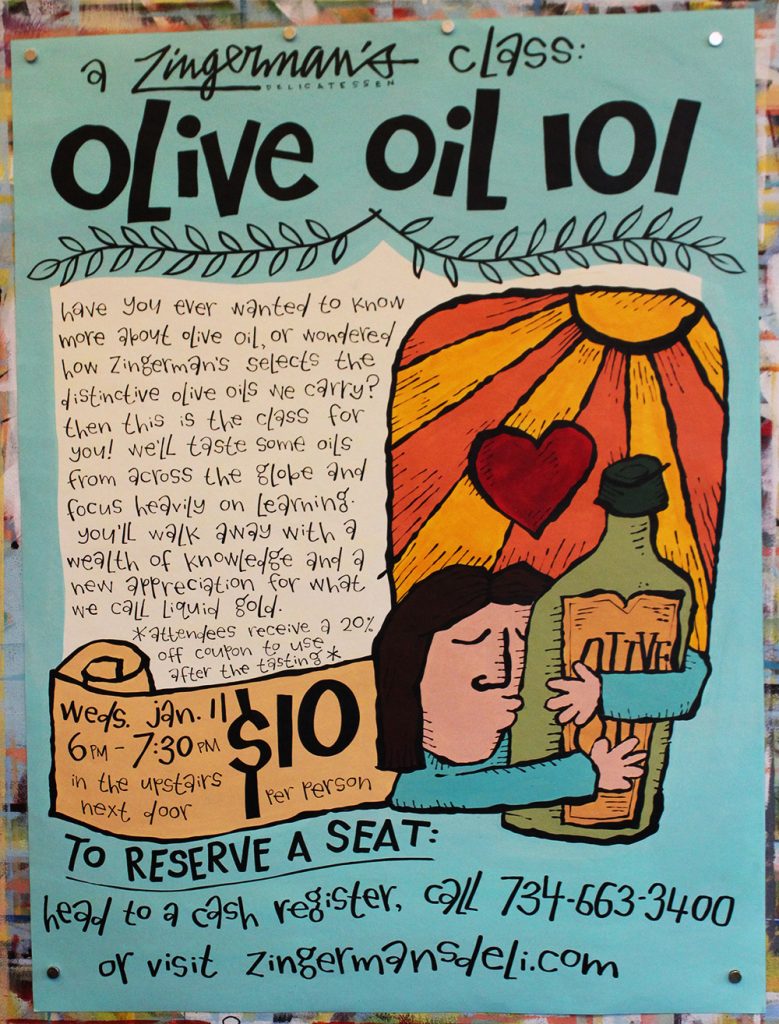 a Zingerman's class:
DELICATESSEN
OLive OiL 101
have you ever wanted to know
more about olive oil, or wondered
how Zingerman's selects the
distinctive olive oils we carry?
then this is the class for
you! we'll taste some oils
from across the globe and
focus heavily on learning.
you'll walk away with a
wealth of knowledge and a
new appreciation for what
we call liquid gold.
*attendees receive a 20%
off coupon to use
after the tasting*
weds. jan. 11
6 PM - 7:30 PM
in the upstairs
next door
$10
per person
OLIVE
TO RESERVE A SEAT:
head to a cash register, call 734-663-3400
or visit zingermansdeli.com